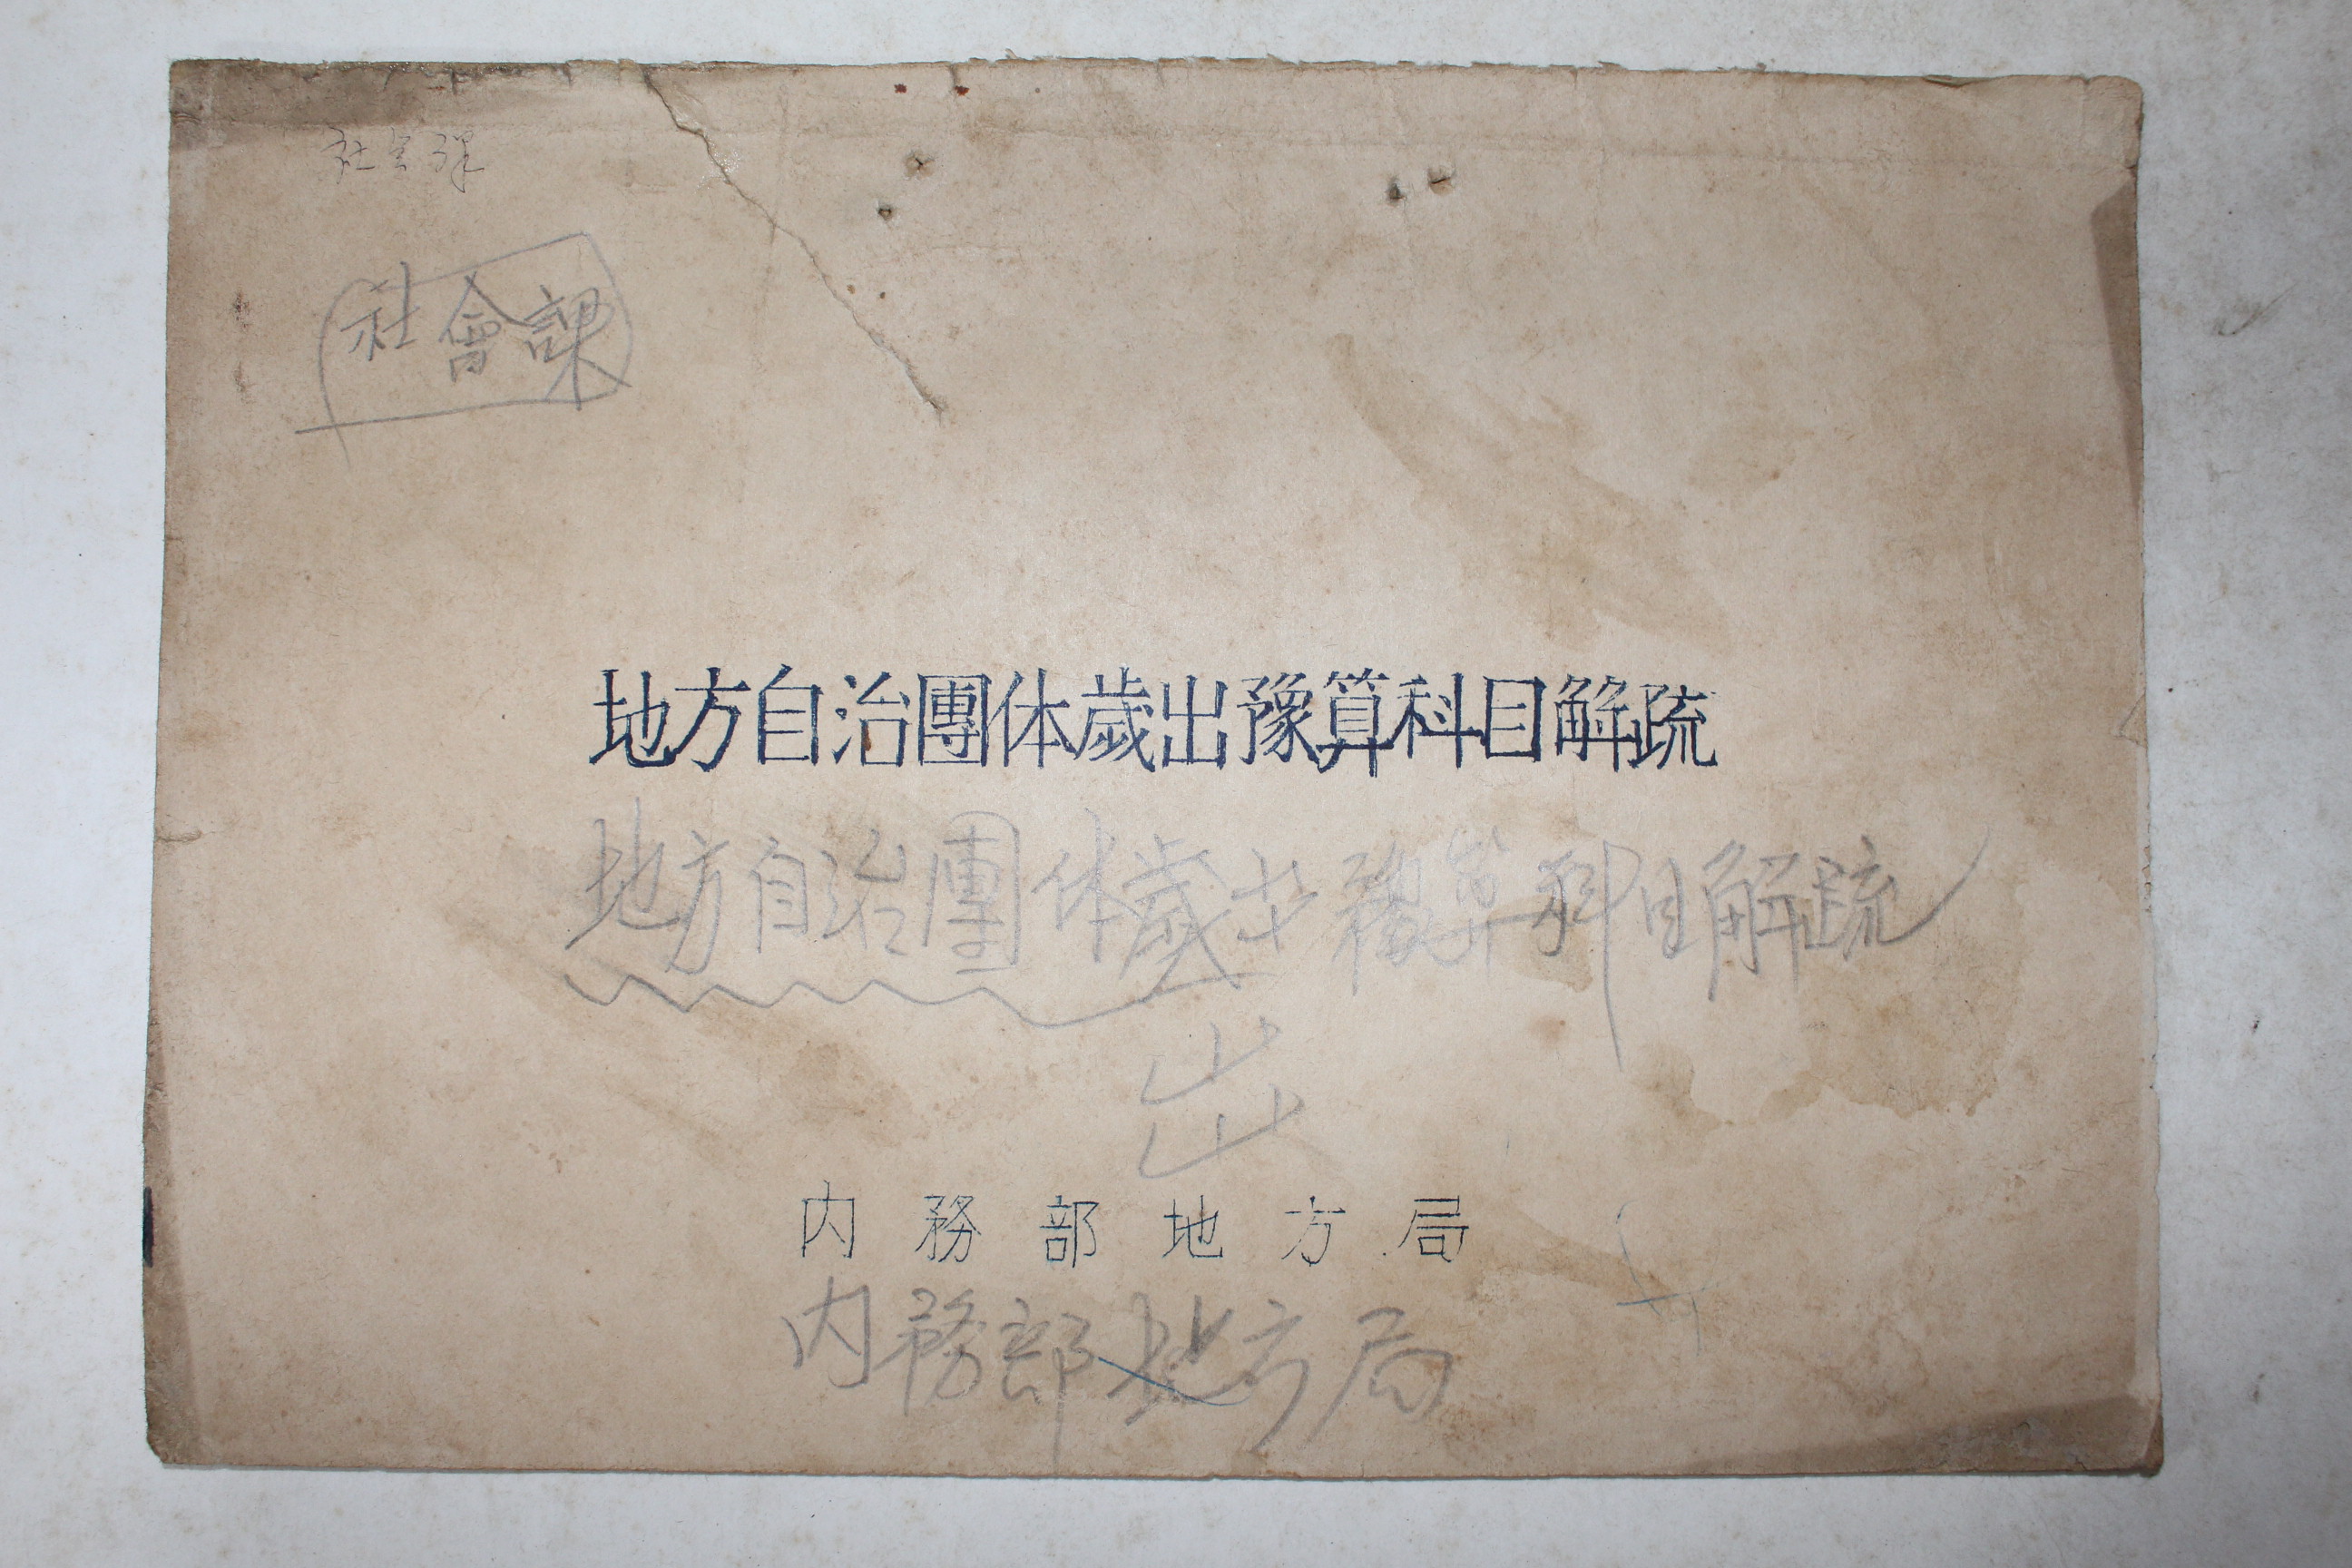 社会課
社會課
地方自治團体歲出豫算科目解疏
地方自治團体歲出豫算科目解疏
出
內務部地方局
內務部地方局